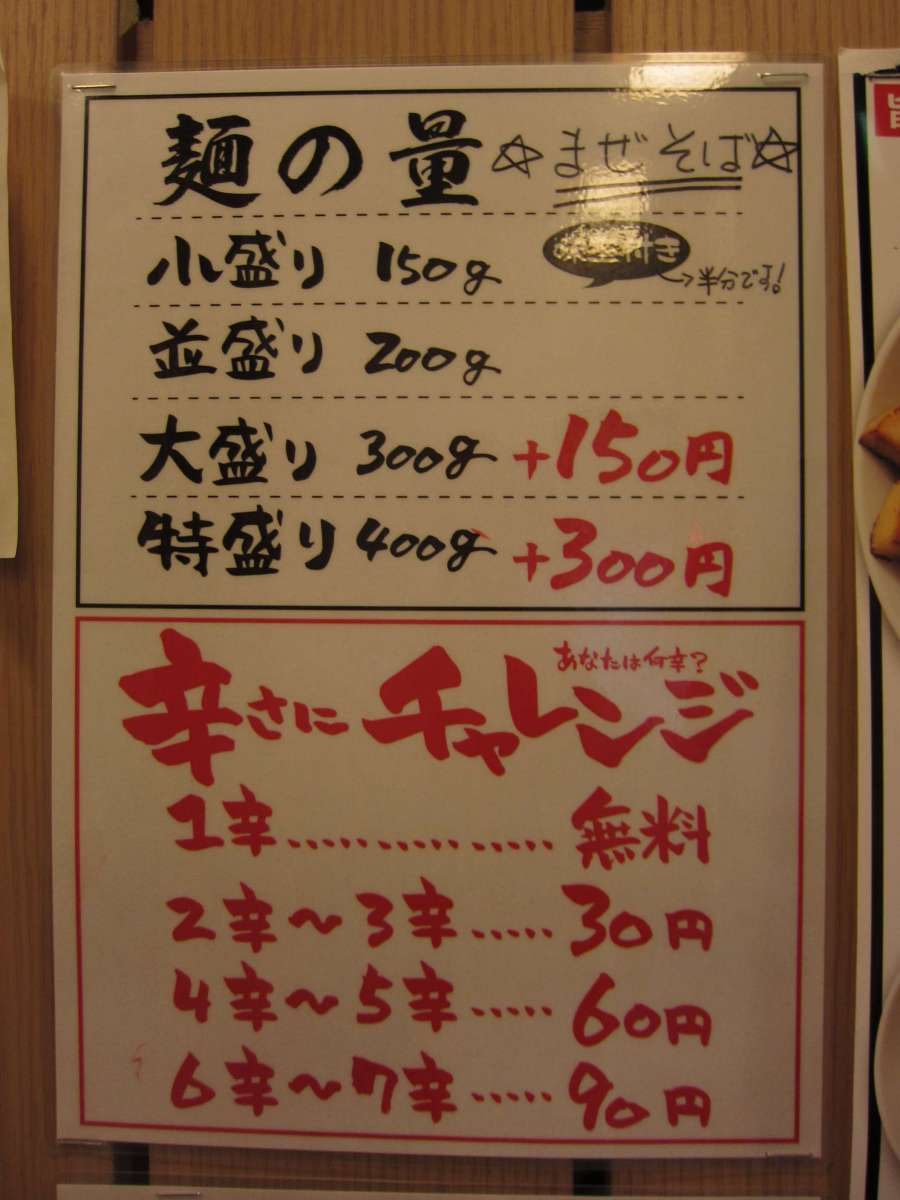 麺の量 ☆まぜそば☆
小盛り 150g 味玉付き
→半分です!
並盛り 200g
大盛り 300g +150円
特盛り 400g +300円
あなたは何辛?
辛さにチャレンジ
1辛……………無料
2辛〜3辛.....30円
4辛〜5辛.....60円
6辛〜7辛.....90円